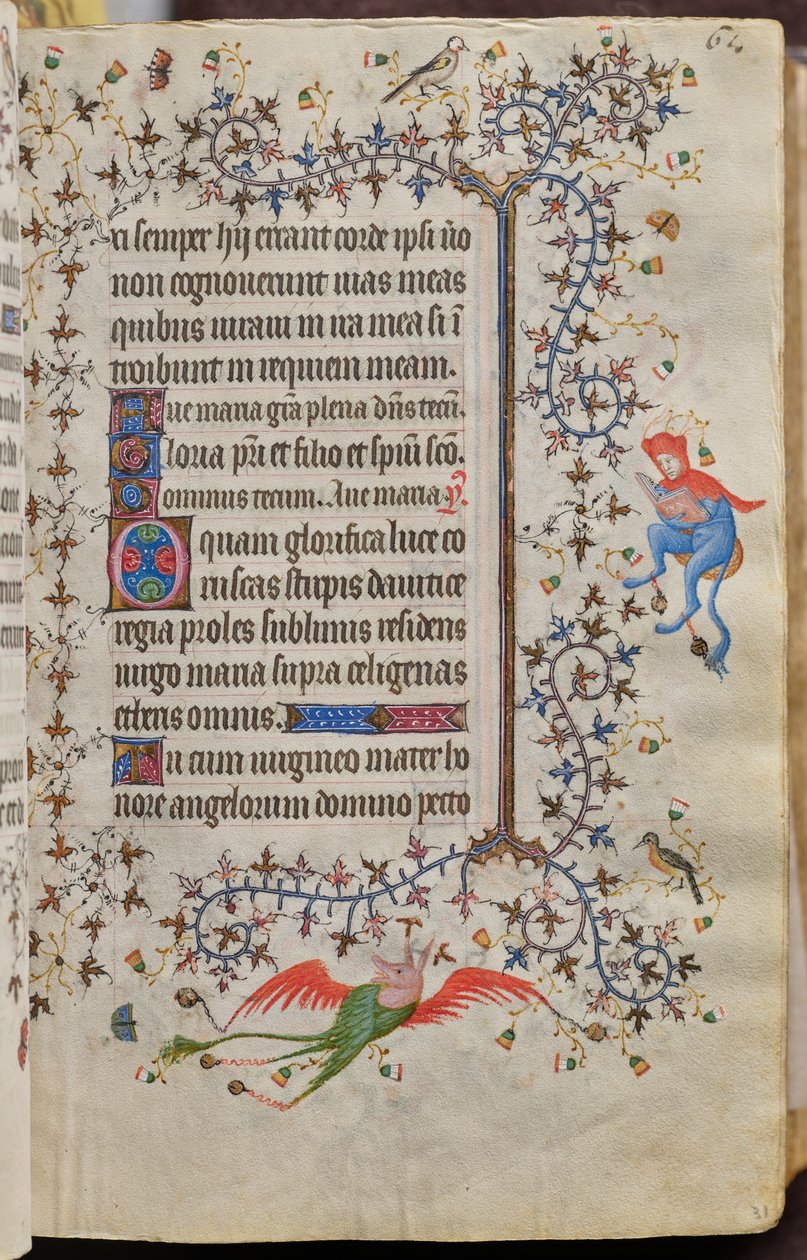 64
ri semper hij errant corde ipsi ũo
non cognouerunt uias meas
quibus iuraui in ira mea si ĩ
troibunt in requiem meam.
Aue maria grã plena dñs tecũ.
Gloria pr̃i et filio et spiritũi scõ.
Dominus tecum. Aue maria. ỹ.
O quam glorifica luce co
ruscas stirpis dauitice
regia proles sublimis residens
uirgo maria supra celigenas
etheris omnis.
Tu cum uirgineo mater ho
nore angelorum domino pecto
31